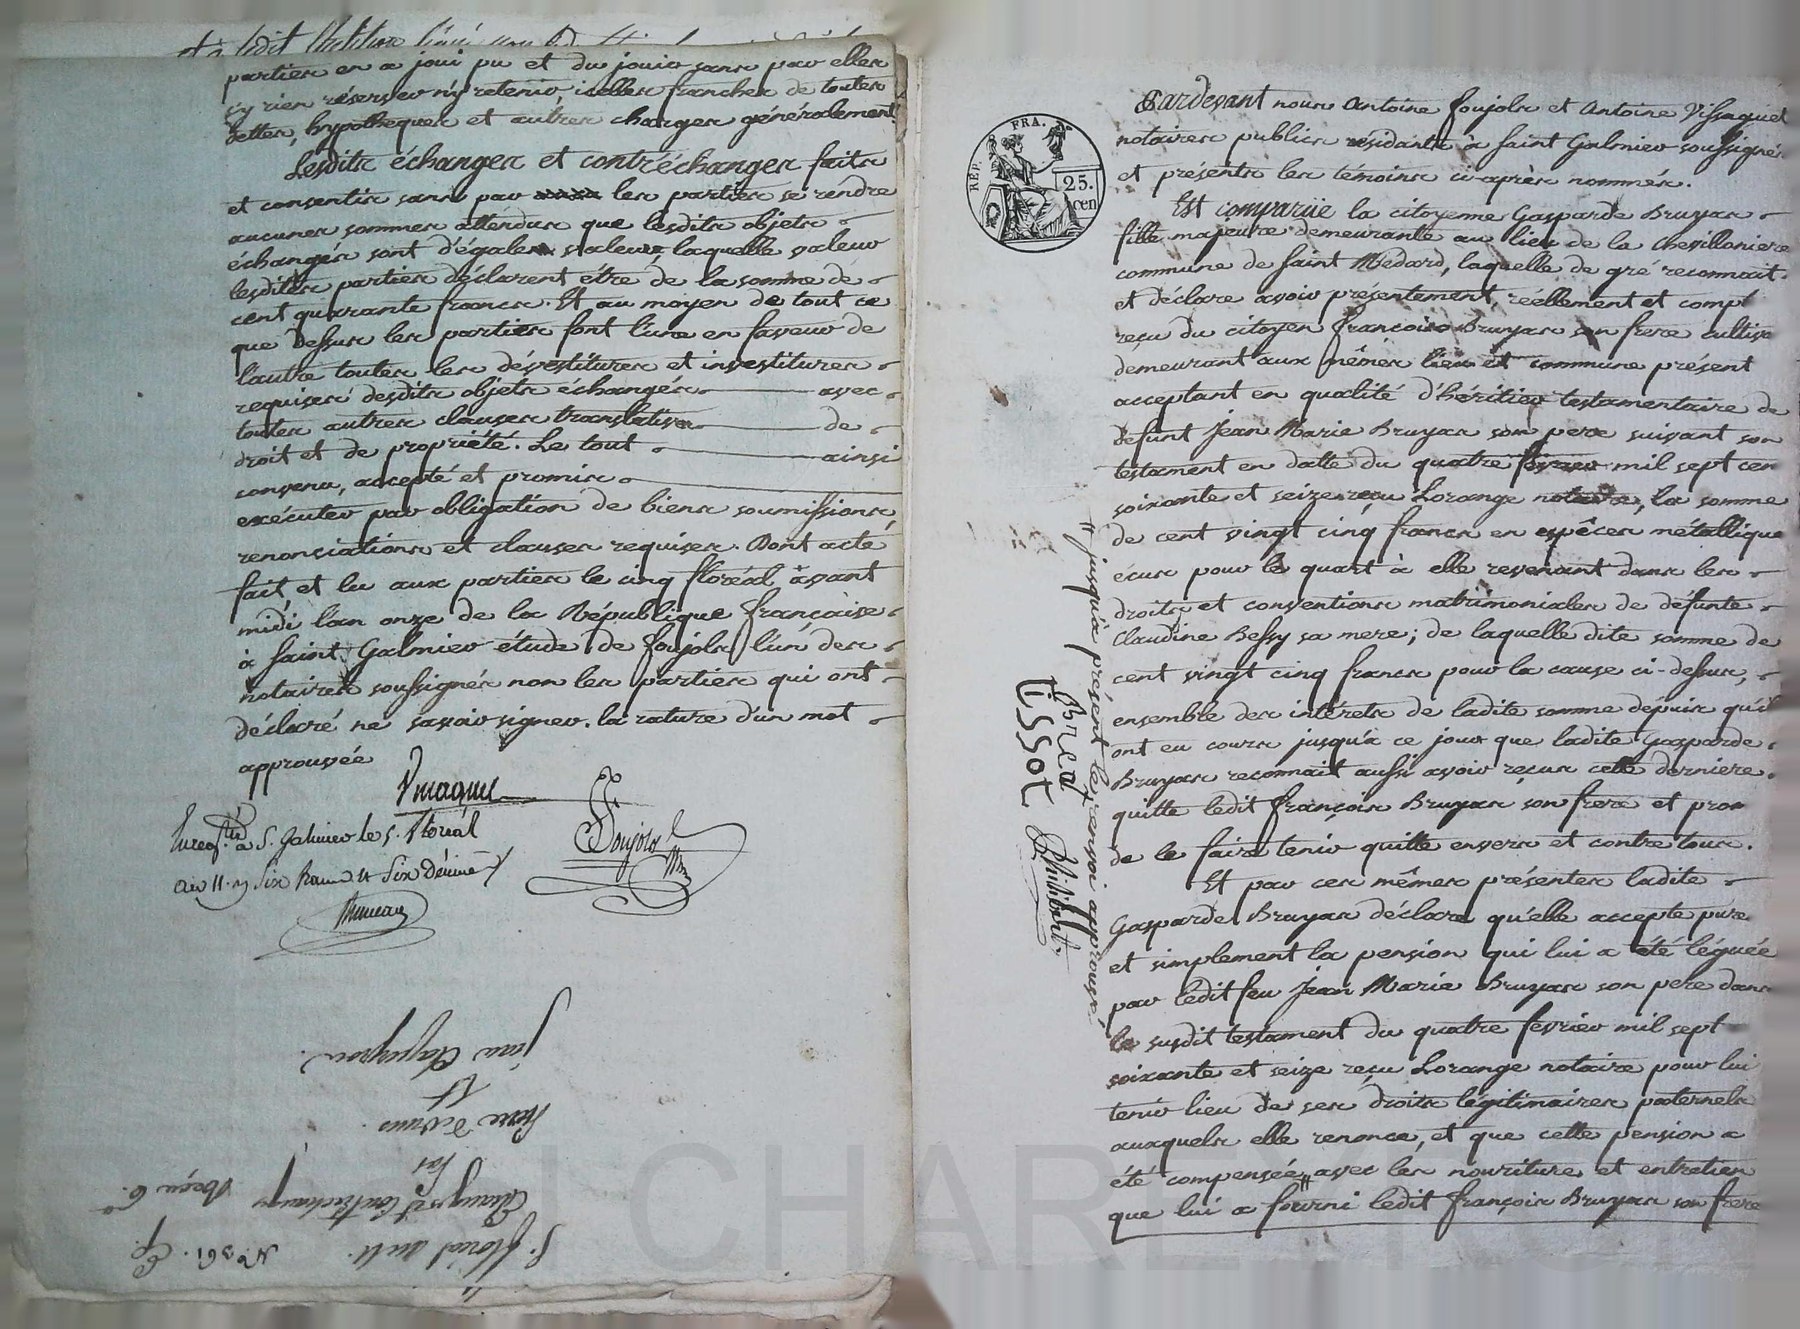 parties en a joui pu et du jouir sans par elles
s'y rien réserver n'y retenir, icelles franches de toutes
dettes, hypotheques et autres charges généralement
Lesdits échanges et contréchanges faits
et consentis sans par les parties se rendre
aucunes sommes attendus que lesdits objets
échangés sont d'égales valeur, laquelle valeur
lesdites parties déclarent être de la somme de
cent quarante francs. Et au moyen de tout ce
que dessus les parties font l'une en faveur de
l'autre toutes les dévestitures et investitures
requises desdits objets échangés avec
toutes autres clauses translatives de
droit et de propriété. Le tout ainsi
convenu, accepté et promis
exécuter par obligation de biens soumissions
renonciations et clauses requises. Dont acte
fait et lu aux parties le cinq floréal avant
midi l'an onze de la République française
à Saint Galmier étude de foujols l'un des
notaires soussignés non les parties qui ont
déclaré ne savoir signer. la rature d'un mot
approuvée
Foujols
à S. Galmier le 5. floréal
an 11.
Six Décimes
jean
Et
Pierre
Par
Echange et Contrechange
Reçu 6.
5. floréal an 11.
N.° 361.
RÉP. FRA.
25.
cen
Pardevant nous Antoine foujols et Antoine Vissaguet
notaires publics résidants à Saint Galmier soussignés
et présents les témoins ci-après nommés.
Est comparüe la citoyenne Gasparde Bruyas
fille majeure demeurante au lieu de la Chevillonniere
commune de Saint Médard, laquelle de gré reconnait
et déclare avoir présentement, réellement et compt
reçu du citoyen françois Bruyas son frere cultiva
demeurant aux mêmes lieu et commune présent
acceptant en qualité d'héritier testamentaire de
défunt Jean Marie Bruyas son pere suivant son
testament en datte du quatre fevrier mil sept cen
soixante et seize reçu Lorange notaire, la somme
de cent vingt cinq francs en espêces métallique
écus pour le quart à elle revenant dans les
droits et conventions matrimoniales de défunte
Claudine Bessy sa mere; de laquelle dite somme de
cent vingt cinq francs pour la cause ci-dessus,
ensemble des intérets de ladite somme dépuis qu'il
ont eu cours jusqu'à ce jour que ladite Gasparde
Bruyas reconnait aussi avoir reçus cette derniere
quitte ledit françois Bruyas son frere et prom
de le faire tenir quitte envers et contre tous.
Et par ces mêmes présentes ladite
Gasparde Bruyas déclare qu'elle accepte pure
et simplement la pension qui lui a été léguée
par ledit feu Jean Marie Bruyas son pere dans
le susdit testament du quatre fevrier mil sept
soixante et seize reçu Lorange notaire pour lui
tenir lieu de ses droits légitimaires paternels
auxquels elle renonce, et que cette pension a
été compensée avec les nouriture et entretien
que lui a fourni ledit françois Bruyas son frere
" jusqu'à présent le renvoi approuvé
Bréat
tissot
Philibert
CHAREYRON